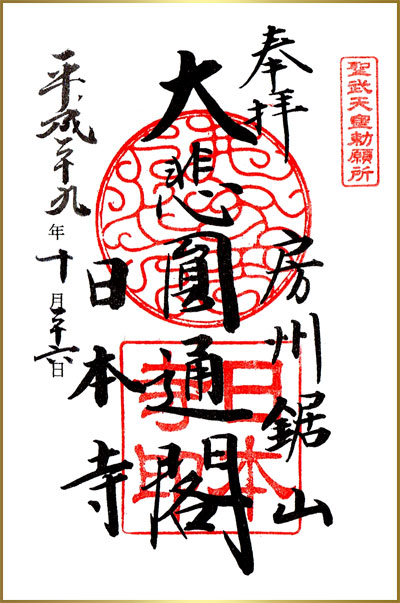 聖武天皇勅願所
奉拝
房州鋸山
大悲圓通閣
日本寺
平成二十九年十月二十六日
日本
寺印